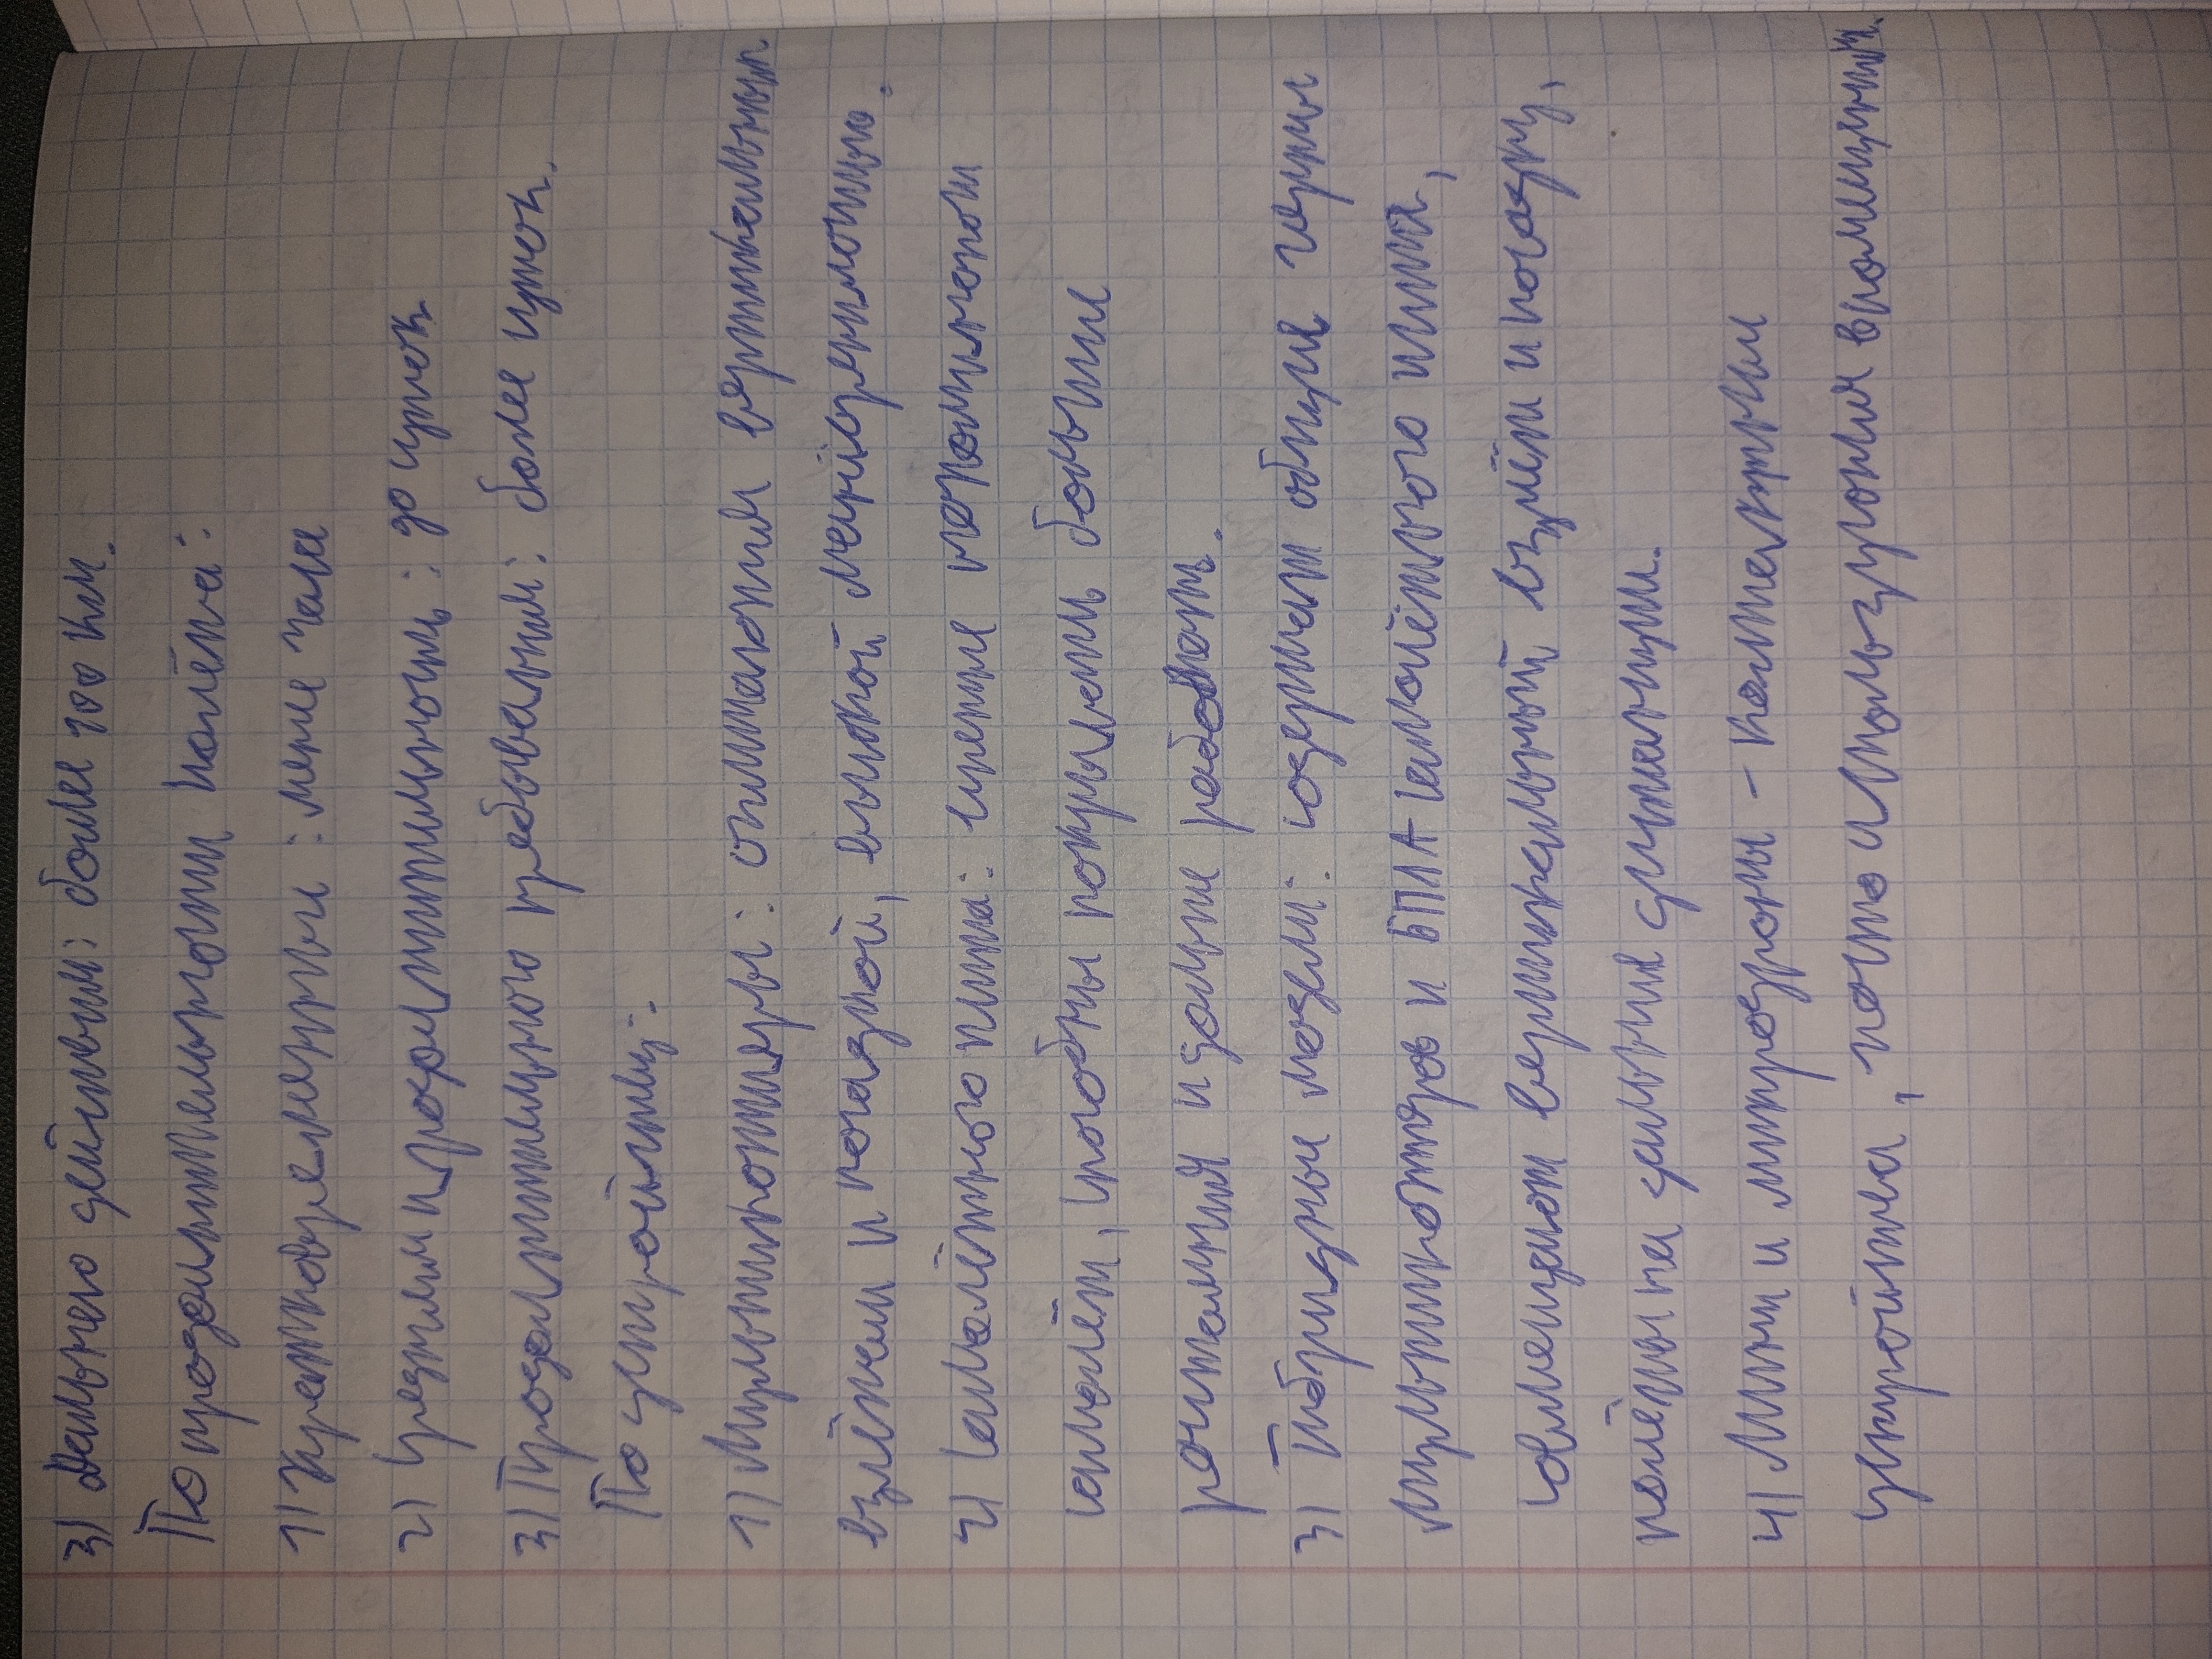 3) Дальнего действия: более 100 км.
По продолжительности полёта:
1) Кратковременные: менее часа
2) Средней продолжительности: до суток
3) Продолжительного пребывания: более суток.
По устройству:
1) Мультикоптеры: отличаются вертикальным
взлётом и посадкой, высокой манёвренностью.
2) Самолётного типа: крылья напоминают
самолёт, способны покрывать большие
расстояния и дольше работать.
3) Гибридные модели: содержат общие черты
мультикоптеров и БПЛА самолётного типа,
совмещают вертикальный взлёт и посадку,
полёты на дальние дистанции.
4) Мини и микродроны - компактные
устройства, часто используются в помещениях